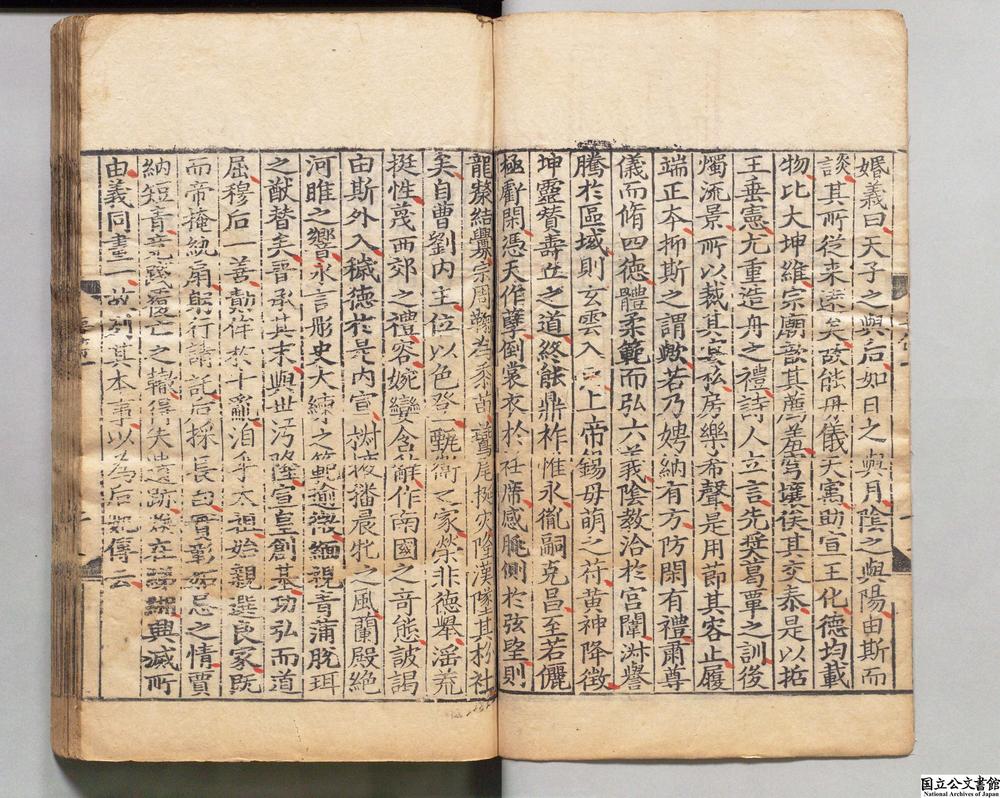 婚義曰天子之與后如日之與月陰之與陽由斯而
談其所從来遠矣故能母儀天㝢助宣王化德均載
物比大坤維宗廟歆其薦羞穹壤俟其交泰是以哲
王垂憲尤重造舟之禮詩人立言先奬葛覃之訓後
燭流景所以裁其宴私房樂希聲是用節其容止履
端正本抑斯之謂歟若乃娉納有方防閑有禮肅尊
儀而脩四德體柔範而弘六義陰教洽於宮闈淋譽
騰於區域則玄雲入上帝錫母萌之符黃神降徵
坤靈贊壽丘之道終能鼎祚惟永胤嗣克昌至若儷
極虧閑憑天作孽倒裳衣於衽席感朓側於弦望則
龍漦結釁宗周鞠為黍苗鷰尾挻灾隆漢墜其枌社
矣自曹劉内主位以色登甄衛之家榮非德舉滛荒
挺性蔑西郊之禮容婉孌含辭作南國之竒態詖謁
由斯外入穢德於是内宣椒掖播晨牝之風蘭殿絶
河雎之響永言彤史大練之範逾微緬視青蒲脫珥
之猷替矣晉承其末與世汚隆宣皇創基功弘而道
屈穆后一善勣侔於十亂洎乎太祖始親選良家既
而帝掩紈扇躬行請託后採長白實彰妬忌之情賈
納短青竟踐覆亡之轍得失遺跡煥在綈緗興滅所
由義同畫一故列其本事以為后妃傳云
国立公文書館
National Archives of Japan